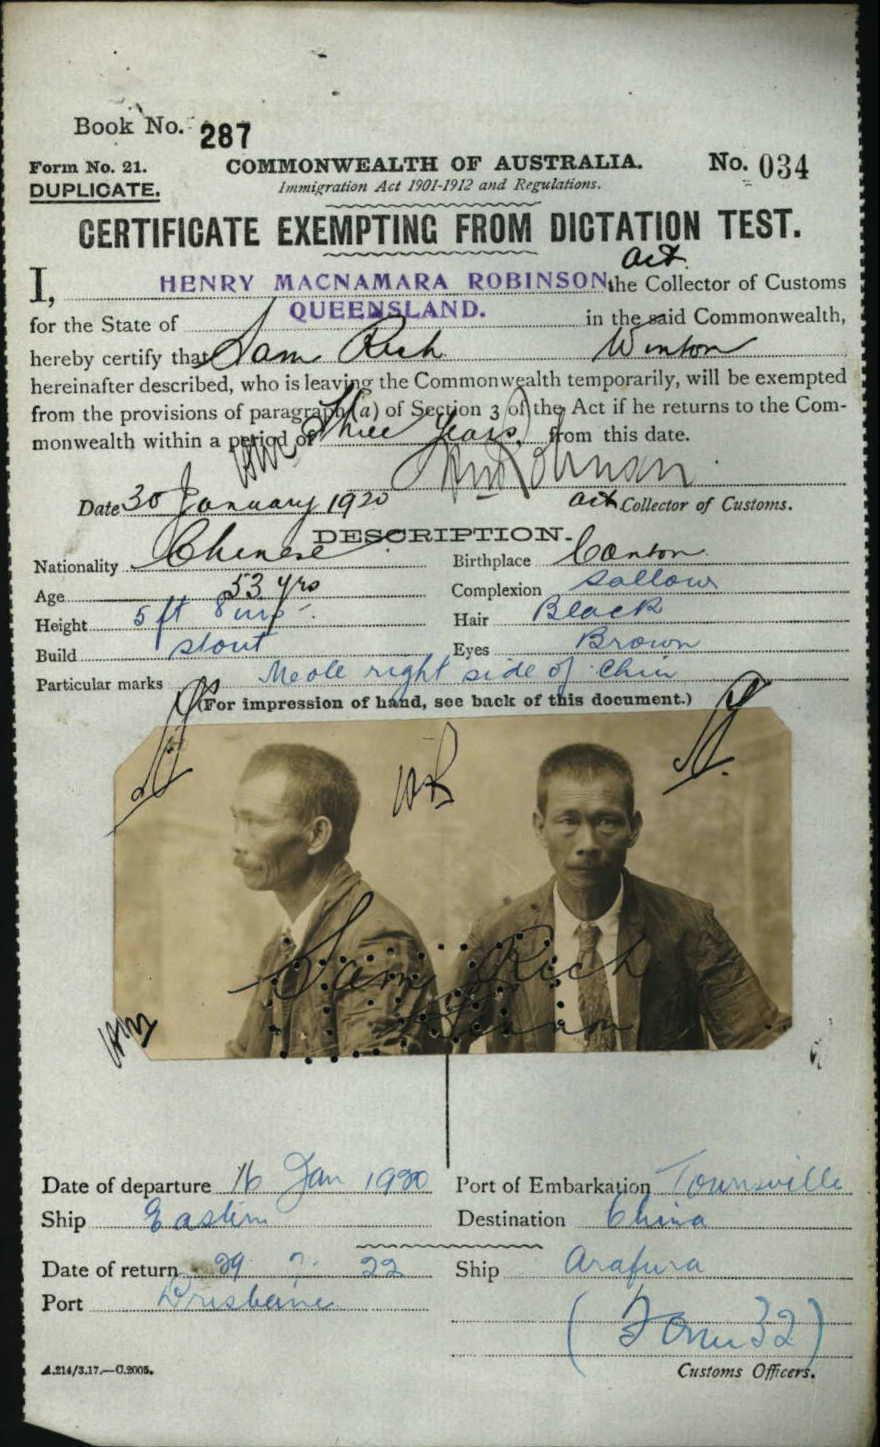 Book No. 287
Form No. 21. COMMONWEALTH OF AUSTRALIA. No. 034
DUPLICATE. Immigration Act 1901-1912 and Regulations.
CERTIFICATE EXEMPTING FROM DICTATION TEST.
act.
I, HENRY MACNAMARA ROBINSON, the Collector of Customs
for the State of QUEENSLAND. in the said Commonwealth,
hereby certify that Sam Rich Winton
hereinafter described, who is leaving the Commonwealth temporarily, will be exempted
from the provisions of paragraph (a) of Section 3 of the Act if he returns to the Com-
monwealth within a period of Three Years from this date.
Date 30 January 1920 act Collector of Customs.
DESCRIPTION.
Nationality Chinese Birthplace Canton
Age 53 yrs Complexion Sallow
Height 5 ft 8 ins Hair Black
Build stout Eyes Brown
Particular marks Meole right side of chin
(For impression of hand, see back of this document.)
Sam Rich
Date of departure 16 Jan 1920 Port of Embarkation Townsville
Ship Eastern Destination China
Date of return 29 22 Ship Arafura
Port Brisbane
(Form 32)
A.214/3.17.—C.2005. Customs Officers.